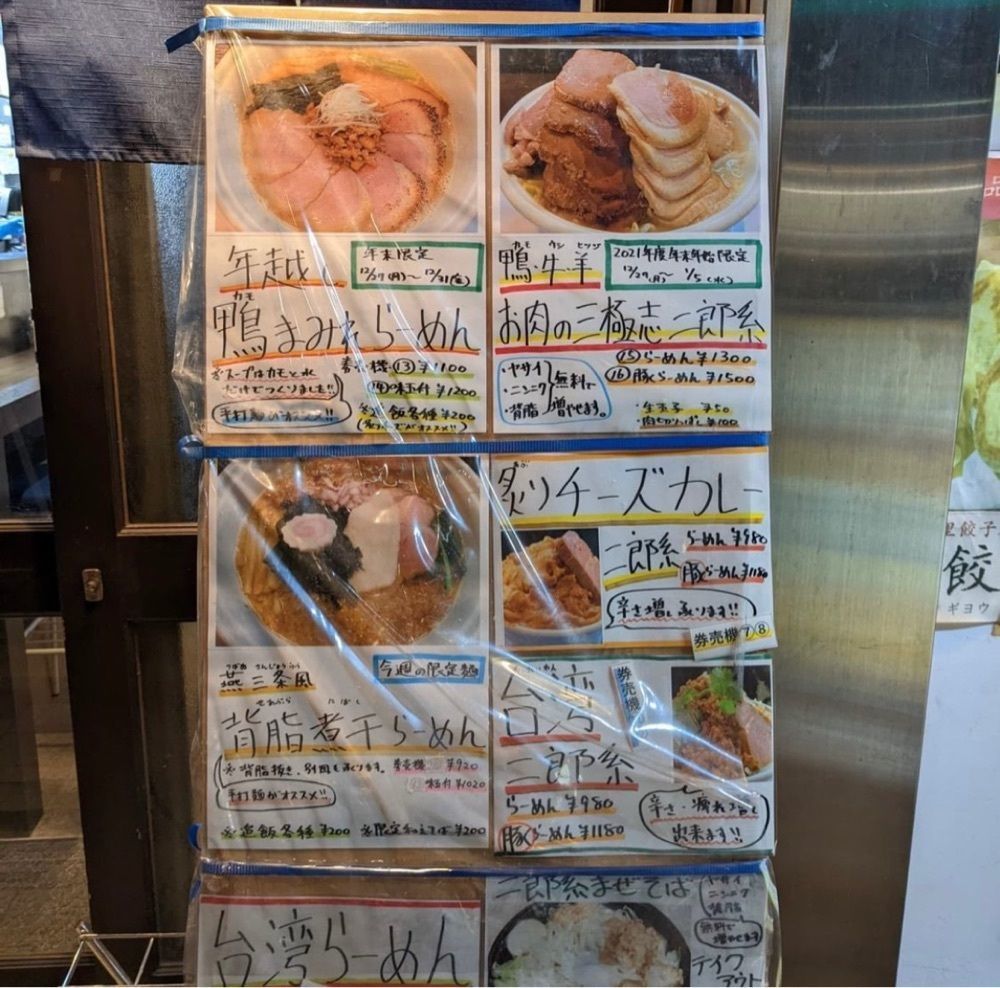 年越し
年末限定
12/27(月)〜12/31(金)
カモ
鴨まみれらーめん
※スープはカモと水
だけでつくりました!!
平打麺がオススメ!!
券売機⑬¥1100
⑭味玉付¥1200
※追飯各種¥200
カモ ウシ ヒツジ
鴨・牛・羊
2021年度年末年始限定
12/27(月)〜1/5(水)
お肉の三極志二郎系
・ヤサイ
・ニンニク
・背脂
無料で
増やせます。
⑮らーめん¥1300
⑯豚らーめん¥1500
・生玉子 ¥50
・肉切りっぱし¥100
つばめ さんじょうふう
燕三条風
今週の限定麺
せあぶら にぼし
背脂煮干らーめん
※背脂抜き、別皿も承ります。
平打麺がオススメ!!
券売機 ¥920
味玉付¥1020
※追飯各種¥200
※限定和えそば¥200
あぶ
炙りチーズカレー
二郎系
らーめん¥980
豚らーめん¥1180
辛さ増し承ります!!
券売機⑦⑧
台湾
券売機
二郎系
らーめん¥980
豚らーめん¥1180
辛さ・痺れ増し
出来ます!!
台湾らーめん
二郎系まぜそば
ヤサイ
ニンニク
背脂
無料で
増やせます
テイク
アウト
品
黒餃子
餃
ギョウ